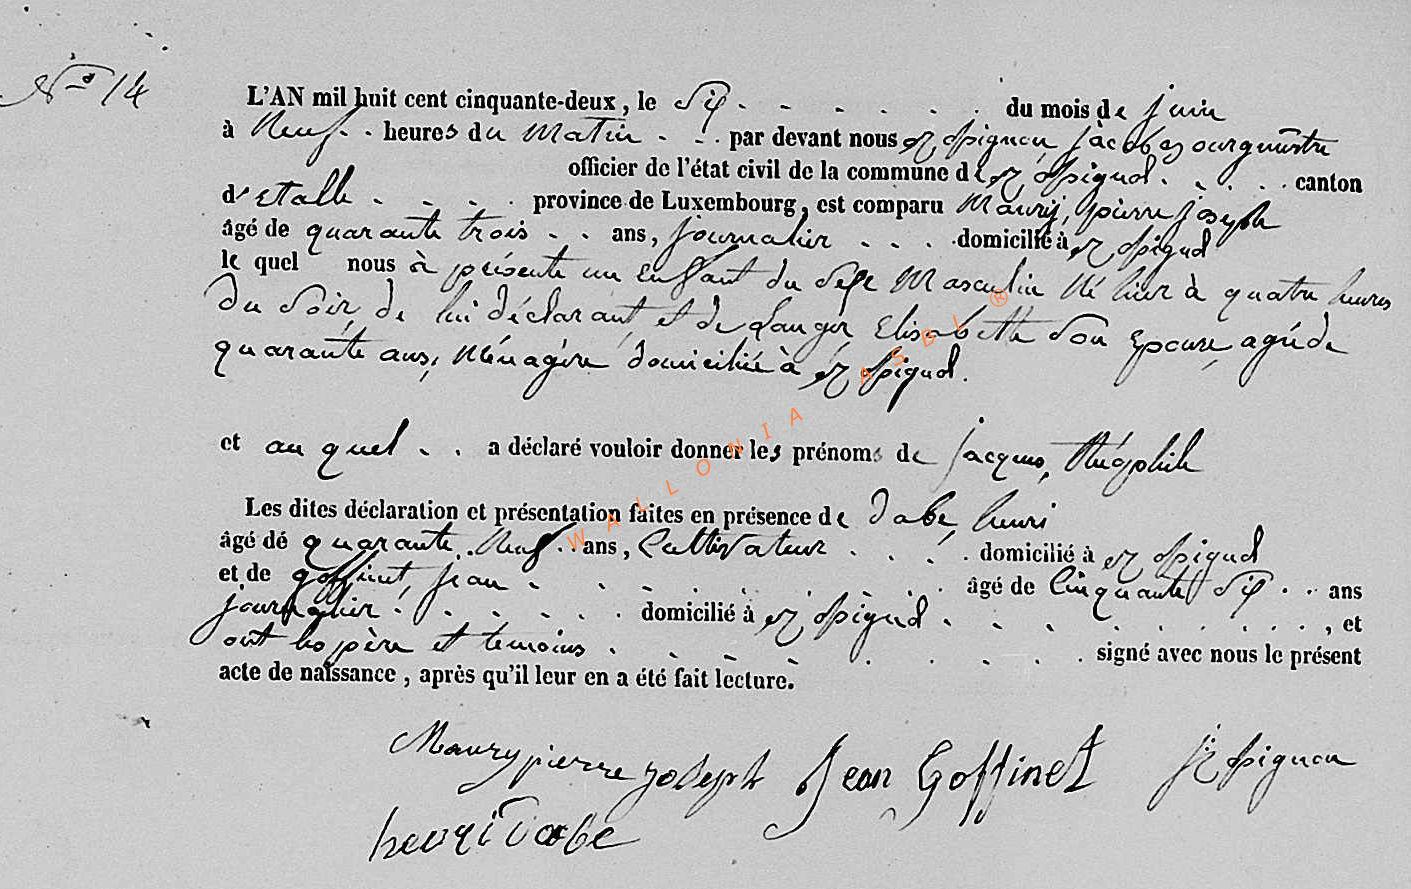 No 14
L'AN mil huit cent cinquante-deux, le Six du mois de juin
à Neuf heures du matin par devant nous Bourgmestre
officier de l'état civil de la commune de canton
d'Etalle province de Luxembourg, est comparu Maury, pierre joseph
âgé de quarante trois ans, journalier domicilié à
le quel nous à présenté un Enfant du Sexe Masculin Né hier à quatre heures
du Soir, de lui déclarant, et de Elisabeth Son Epouse, agée de
quarante ans, Ménagère domiciliée à
et au quel a déclaré vouloir donner les prénoms de jacques, théophile
Les dites déclaration et présentation faites en présence de Dabe, henri
âgé de quarante Neuf ans, Cultivateur domicilié à
et de goffinet, jean âgé de Cinquante Six ans
journalier domicilié à , et
ont les père et temoins signé avec nous le présent
acte de naissance, après qu'il leur en a été fait lecture.
Maury pierre joseph Jean Goffinet
henri Dabe
WALLONIA ASBL ®